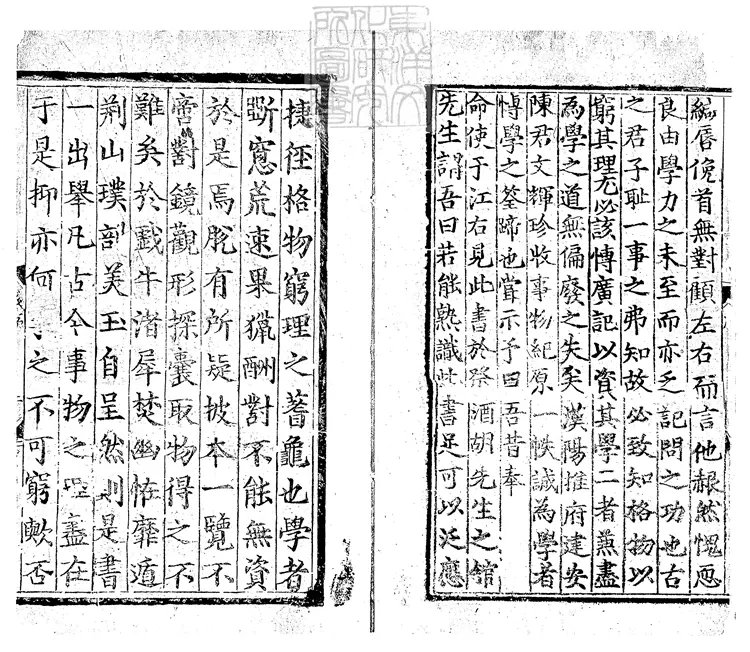 緘唇俛首無對顧左右而言他赧然愧恧
良由學力之未至而亦乏記問之功也古
之君子恥一事之弗知故必致知格物以
窮其理尤必該博廣記以資其學二者兼盡
為學之道無偏廢之失矣漢陽推府建安
陳君文輝珍收事物紀原一帙誠為學者
博學之筌蹄也嘗示予曰吾昔奉
命使于江右見此書於祭酒胡先生之館
先生謂吾曰若能熟識此書足可以泛應
捷徑格物窮理之蓍龜也學者
斷窻荒速果獵酬對不能無資
於是焉脫有所疑披本一覽不
啻對鏡觀形探囊取物得之不
難矣於戲牛渚犀焚幽恠靡遁
荊山璞剖美玉自呈然則是書
一出舉凡古今事物之盡在
于是抑亦何之不可窮歟否
東洋文
化研究
所圖書